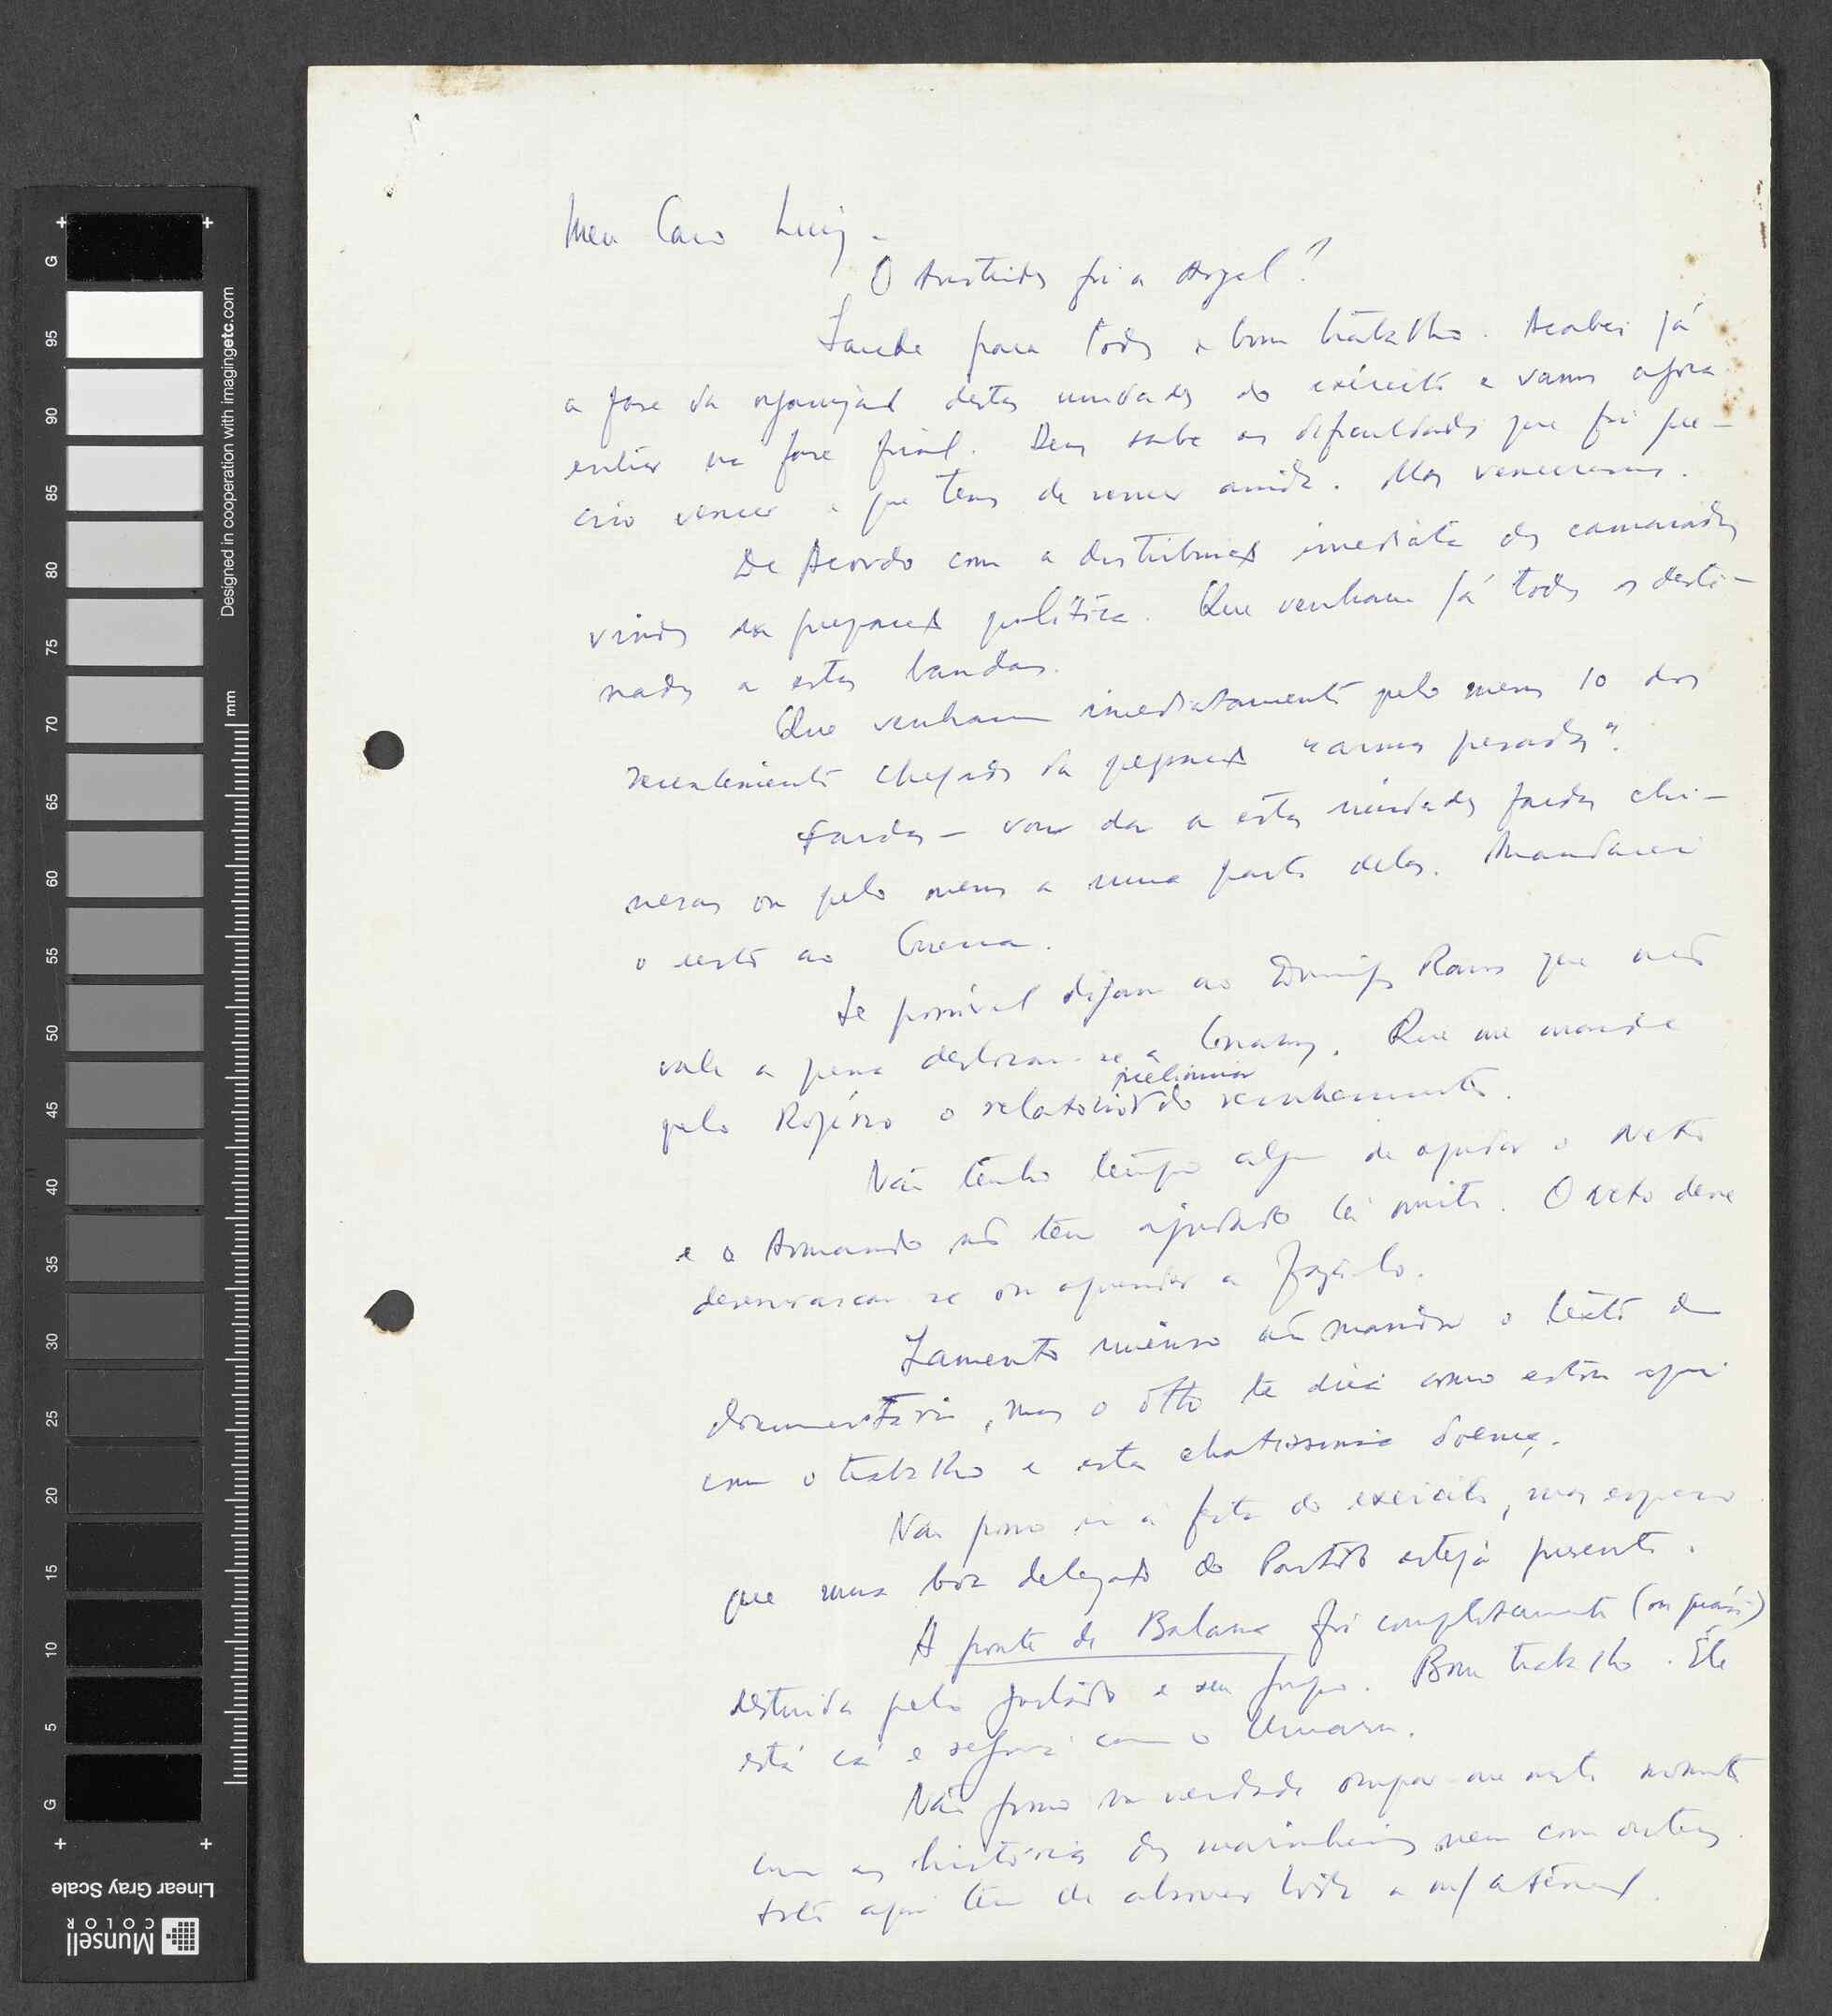 Meu Caro Luiz -
O Aristides foi a Argel?
Saude para todos e bom trabalho. Acabei já
a fase da organização destas unidades do exército e vamos agora
entrar na fase final. Deus sabe as dificuldades que foi pre-
ciso vencer e que temos de vencer ainda. Mas venceremos.
De Acordo com a distribuição imediata dos camaradas
vindos da preparação política. Que venham já todos os desti-
nados a estas bandas.
Que venham imediatamente pelo menos 10 dos
recentemente chegados da preparação "armas pesadas".
Fardas - vou dar a estas unidades fardas chi-
nesas ou pelo menos a uma parte delas. Mandarei
o resto ao
Se possível digam ao Domingos Ramos que não
vale a pena deslocar-se a Conakry. Que me mande
pelo Rogério o relatório preliminar do reconhecimento.
Não tenho tempo algum de ajudar o Neto
e o Armando não tem ajudado lá muito. O Neto deve
desenrascar-se ou aprender a fazê-lo.
Lamento imenso não mandar o texto do
documentário, mas o Otto te dirá como estou aqui
com o trabalho e esta chatissima doença.
Não posso ir à festa do exército, mas espero
que uma boa delegação do Partido esteja presente.
A ponte de Balana foi completamente (ou quási)
destruida pelo e seu grupo. Bom trabalho. Êle
está cá e seguirá com o Umaru.
Não posso na verdade ocupar-me neste momento
com as histórias dos marinheiros nem com outras.
Isto aqui tem de absorver toda a m/ atenção.